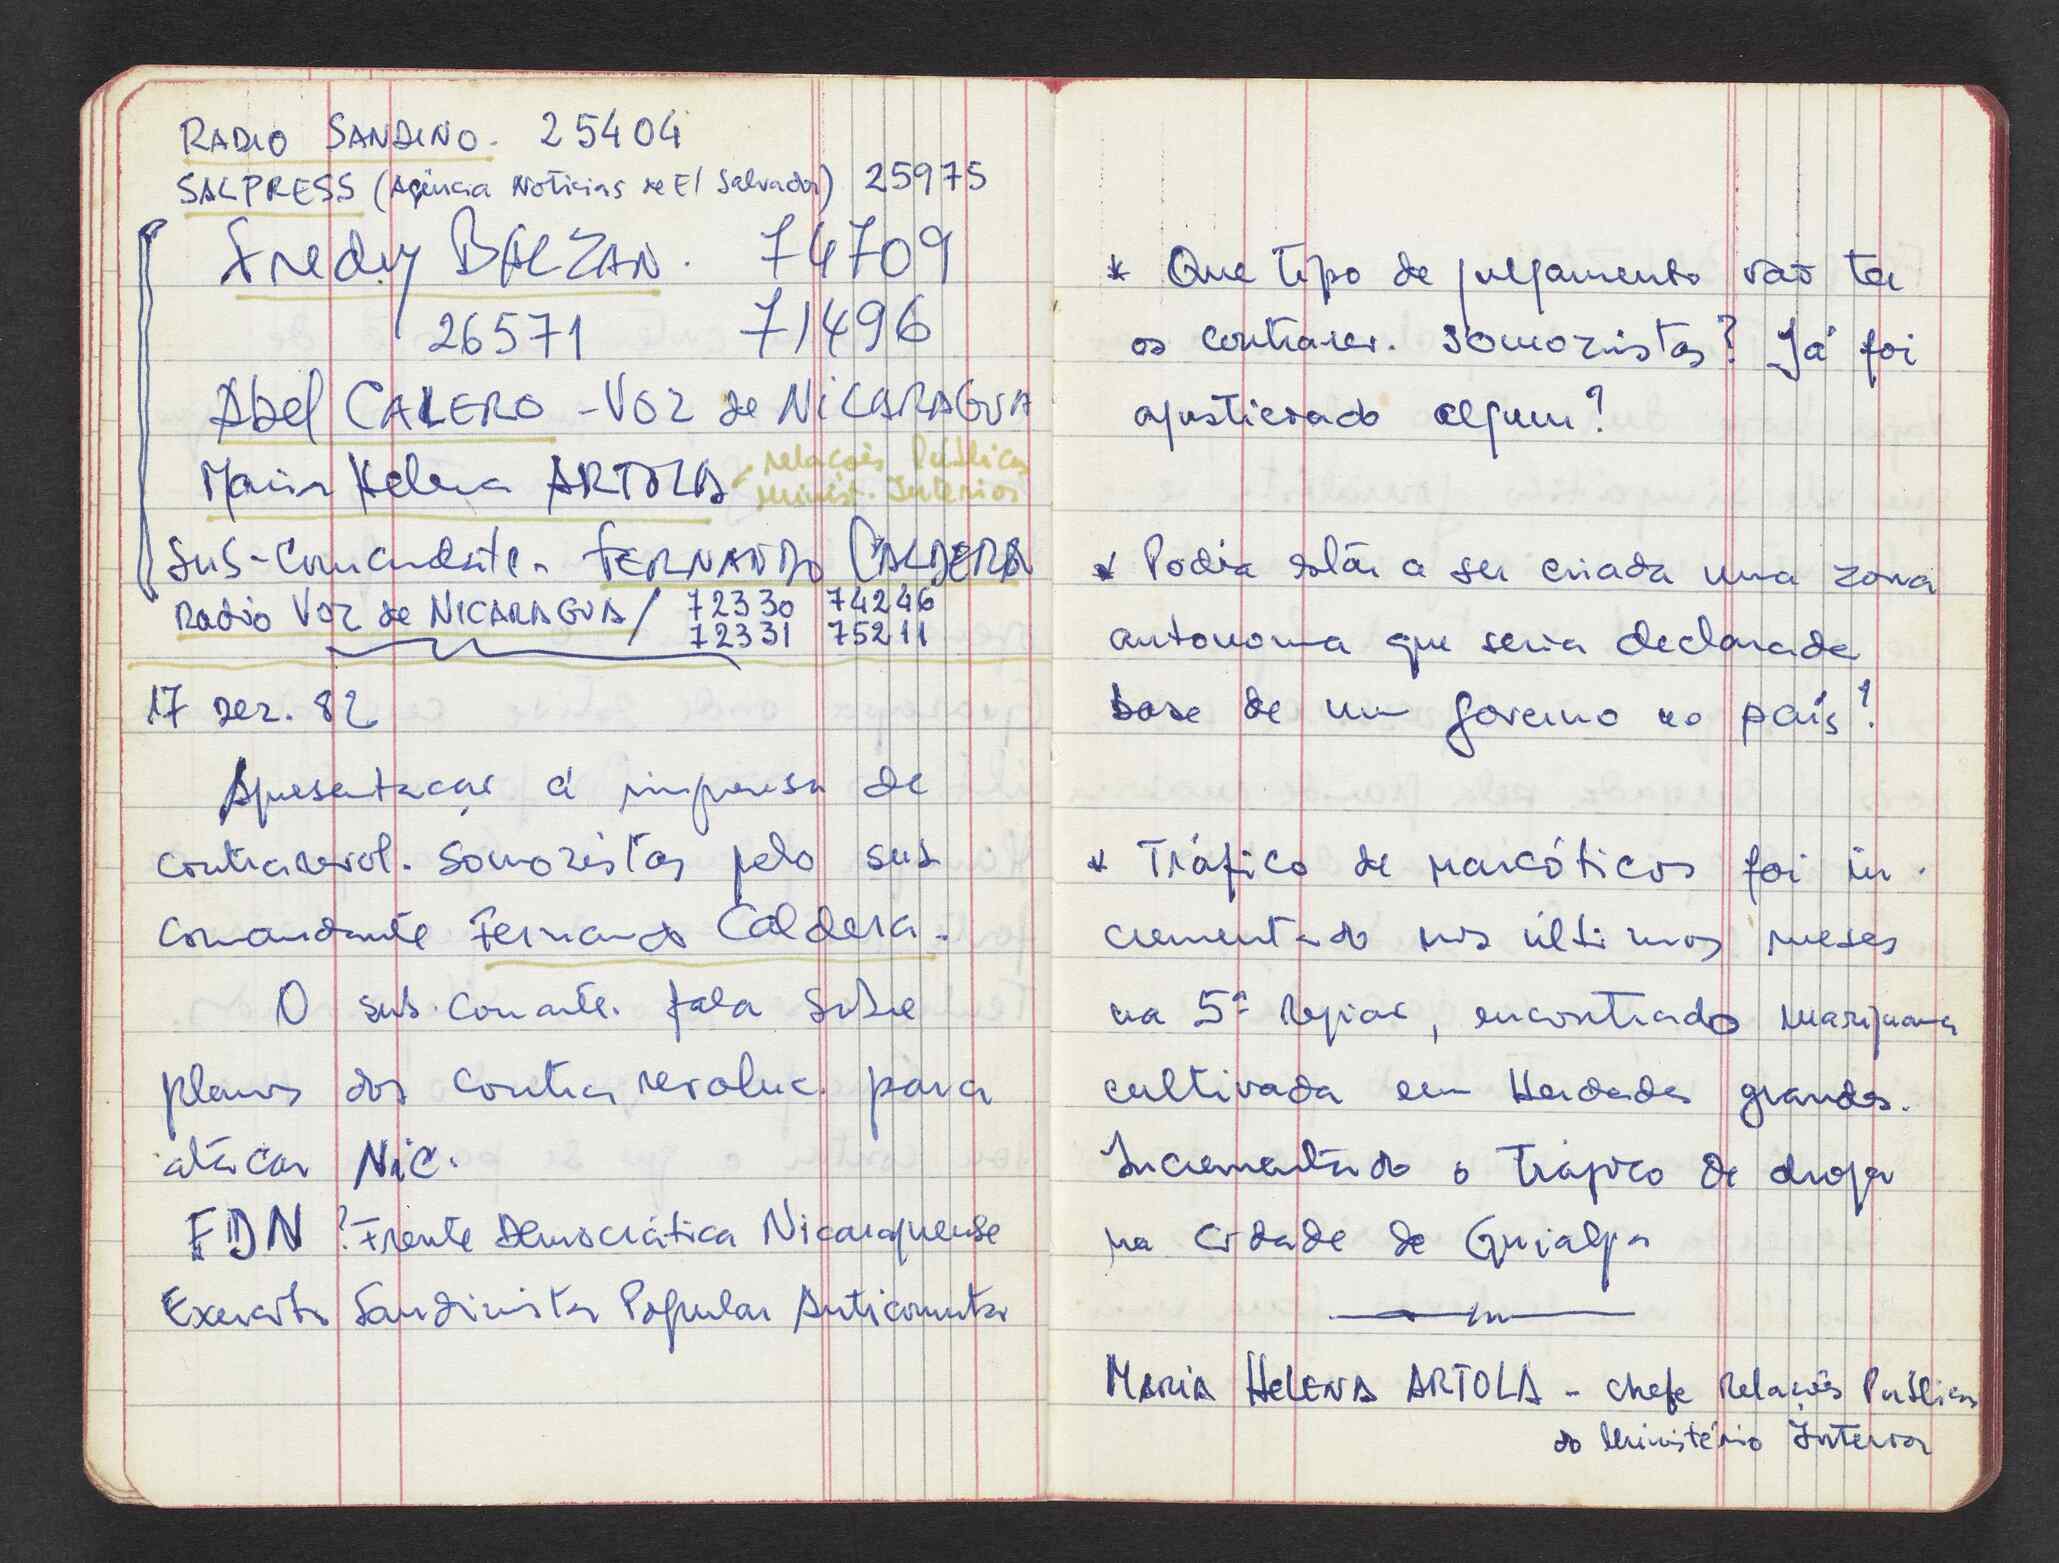 RADIO SANDINO. 25404
SALPRESS (Agência Noticias de El Salvador) 25975
Fredy BALZAN. 74709
26571 71496
Abel CALERO - VOZ de NICARAGUA
Maria Helena ARTOLA relações Públicas
Minist. Interior
Sub-Comandante. FERNANDO CALDERA
Radio VOZ de NICARAGUA / 72330 74246
72331 75211
17 Dez. 82
Apresentaçar á imprensa de
contrarevol. Somozistas pelo sub
comandante Fernando Caldera.
O sub. Comante. fala sobre
planos dos contra revoluc. para
atácar NIC.
FDN ? Frente Democrática Nicaraguense
Exercito Sandinista Popular
* Que tipo de julgamento vão ter
os contrarev. somozistas? Já foi
ajusticiado algum?
* Podia estár a ser criada uma zona
autonoma que seria declarada
base de um governo no país?
* Tráfico de narcóticos foi in.
crementado nos últimos meses
na 5ª Regiar, encontrado marijuana
cultivada em Herdades grandes.
Incrementado o tráfico de droga
na cidade de
MARIA HELENA ARTOLA - chefe Relações Publicas
do Ministério Interior